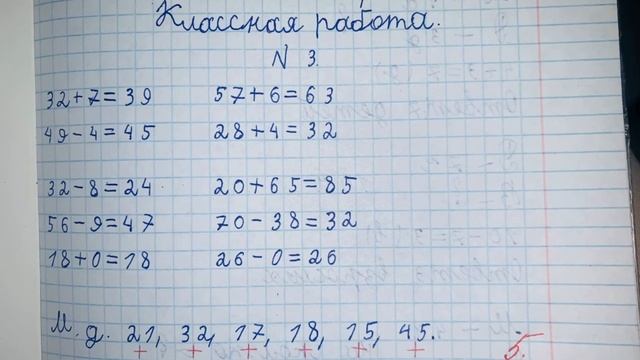 Классная работа.
N 3.
32+7=39 57+6=63
49-4=45 28+4=32
32-8=24 20+65=85
56-9=47 70-38=32
18+0=18 26-0=26
М. д. 21, 32, 17, 18, 15, 45.
+ + + + + +
5.